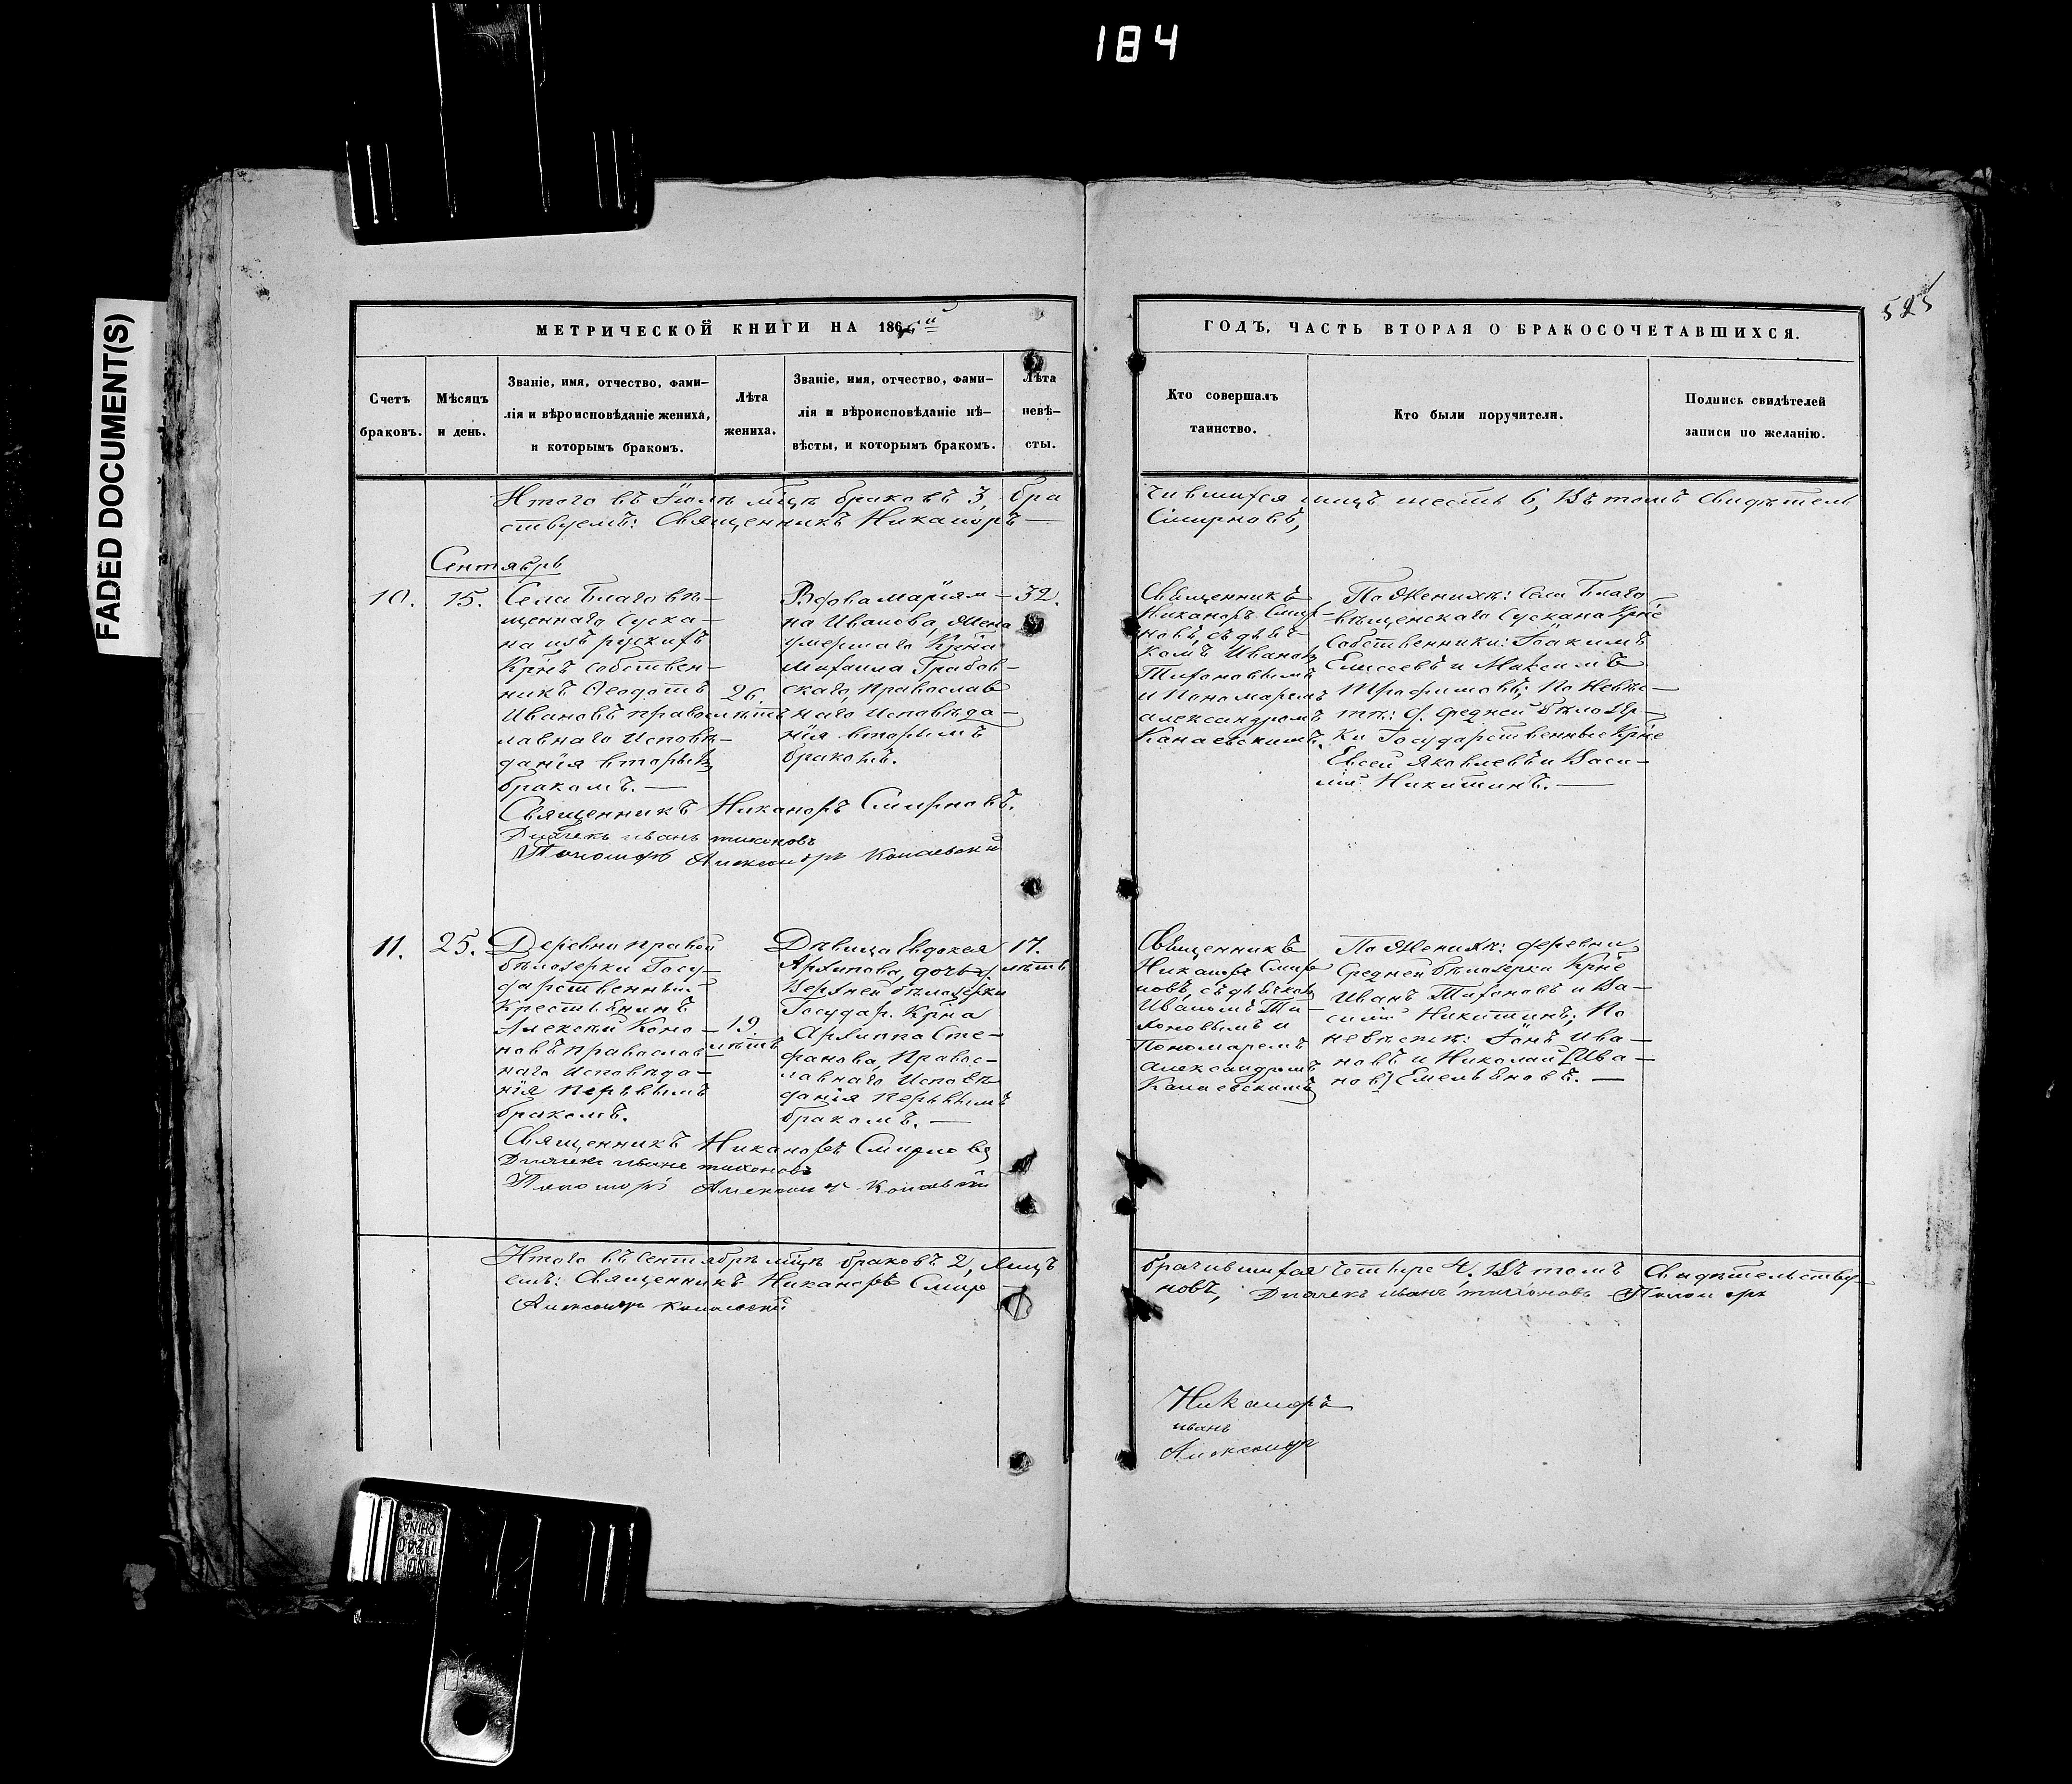 184
FADED DOCUMENT(S)
525
МЕТРИЧЕСКОЙ КНИГИ НА 186
ГОДЪ, ЧАСТЬ ВТОРАЯ О БРАКОСОЧЕТАВШИХСЯ.
Счетъ
браковъ.
Мѣсяцъ
и день.
Званіе, имя, отчество, фами–
лія и вѣроисповѣданіе жениха,
и которымъ бракомъ.
Лѣта
жениха.
Званіе, имя, отчество, фами–
лія и вѣроисповѣданіе нѣ–
вѣсты, и которымъ бракомъ.
Лѣта
невѣ–
сты.
Кто совершалъ
таинство.
Кто были поручители.
Подпись свидѣтелей
записи по желанію.
Итого въ Іюлѣ мцѣ браковъ 3, бра
чившихся лицъ шесть 6, Въ томъ свидѣтель
ствуемъ: Священникъ Никаноръ —
Смирновъ,
Сентябрь
10.
15.
Села Благовѣ–
щеннаго Суска–
на изъ рускихъ
Крнъ собствен–
никъ Ѳеодотъ
Ивановъ правос
лавнаго исповѣ–
данія вторымъ
бракомъ. —
26.
лѣтъ
Вдова Маріам–
на Иванова, жена
умершаго Крна
Михаила Грабов–
скаго, Православ
наго исповѣда–
нія вторымъ
бракомъ.
32.
Священникъ
Никаноръ Смир–
новъ, съ дьяч–
комъ Иваномъ
Тихоновымъ
и Пономаремъ
Александромъ
Канаевскимъ.
По Женихѣ: Села Благо
вѣщенскаго Сускана Крне
Собственники: Іоакимъ
Елисеевъ и Максимъ
Трофимовъ; По Невѣс–
тѣ: д. Средней Бѣлозер–
ки Государственные Крне
Евсей Яковлевъ и Васи–
лій Никитинъ. —
Священникъ Никаноръ Смирновъ.
Дьячекъ иванъ тихоновъ
Пономарь Александръ Канаевскій
11.
25.
Деревни правой
бѣлозерки Госу–
дарственный
Крестьянинъ
Алексѣй Коно–
новъ православ–
наго исповѣда–
нія первымъ
бракомъ.
19.
лѣтъ
Дѣвица Евдокея
Архипова, дочь д.
Верхней бѣлозерки
Государ. Крна
Архиппа Сте–
фанова, Правос–
лавнаго исповѣ
данія первымъ
бракомъ. —
17.
лѣтъ
Священникъ
Никаноръ Смир
новъ, съ дьячкомъ
Иваномъ Ти–
хоновымъ и
Пономаремъ
Александромъ
Канаевскимъ
По Женихѣ: деревни
Средней бѣлозерки Крне
Иванъ Тихоновъ и Ва–
силій Никитинъ; По
невѣстѣ: Іонъ Ива–
новъ и Николай (Ива–
новъ) Емельяновъ. —
Священникъ Никаноръ Смирновъ
Дьячекъ иванъ тихоновъ
Пономарь Александръ Канаевскій
Итого въ сентябрѣ мцѣ браковъ 2, лицъ
брачившихся четыре 4. Въ томъ свидѣтельству–
емъ: Священникъ Никаноръ Смир
новъ, Дьячекъ иванъ тихоновъ Пономарь
Александръ Канаевскій
Никаноръ
иванъ
Александръ
NO.
11240
CHINA